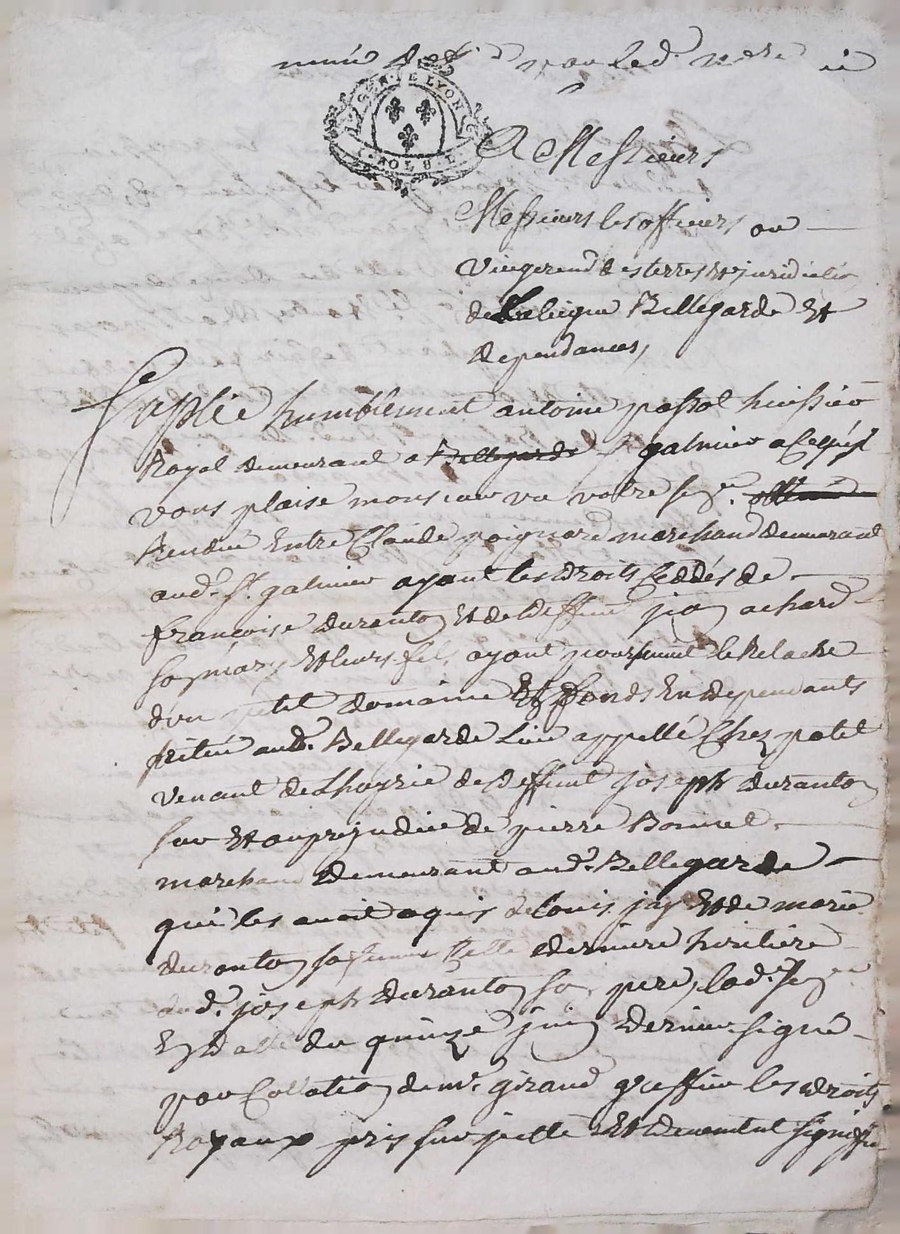 GEN. DE LYON
SOLS
A Messieurs
Messieurs les officiers ou
vicegerend des terres et juridictio
de Bellegarde Et
dependances,
Suplie humblement antoine passol huissier
Royal demeurant a Bellegarde St galmier
vous plaise monsieur vu votre
Rendue Entre Claude poignard marchand demeurant
aud. St. galmier ayant les droits Ceddés de
francoise duranton Et de deffunt jean achard
son mary Et leurs fils, ayant poursuivi le Relache
d'un petit domaine Et fonds En dependants
scitué aud. Bellegarde Lieu appellé Chez patet
venant de Lhoyrie de deffunt joseph duranton
sur Et au prejudice de pierre Bonnet
marchand demeurant aud. Bellegarde
qui les avoit aquis de louis jay Et de marie
duranton sa femme Celle derniere heritiere
dud. joseph duranton son pere, lad.
En datte du quinze juin dernier signé
par Collation de mr. giraud greffier les droits
Royaux pris sur jcelle Et duement signiffié